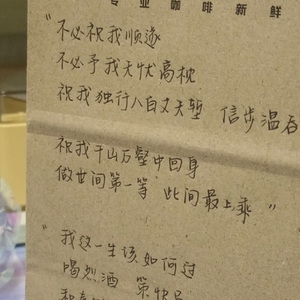 专业咖啡新鲜
“不必祝我顺遂
不必予我无忧高枕
祝我独行八百丈天堑 信步温吞
祝我千山石壑中回身
做世间第一等 此间最上乘”
“我这一生该如何过
喝烈酒